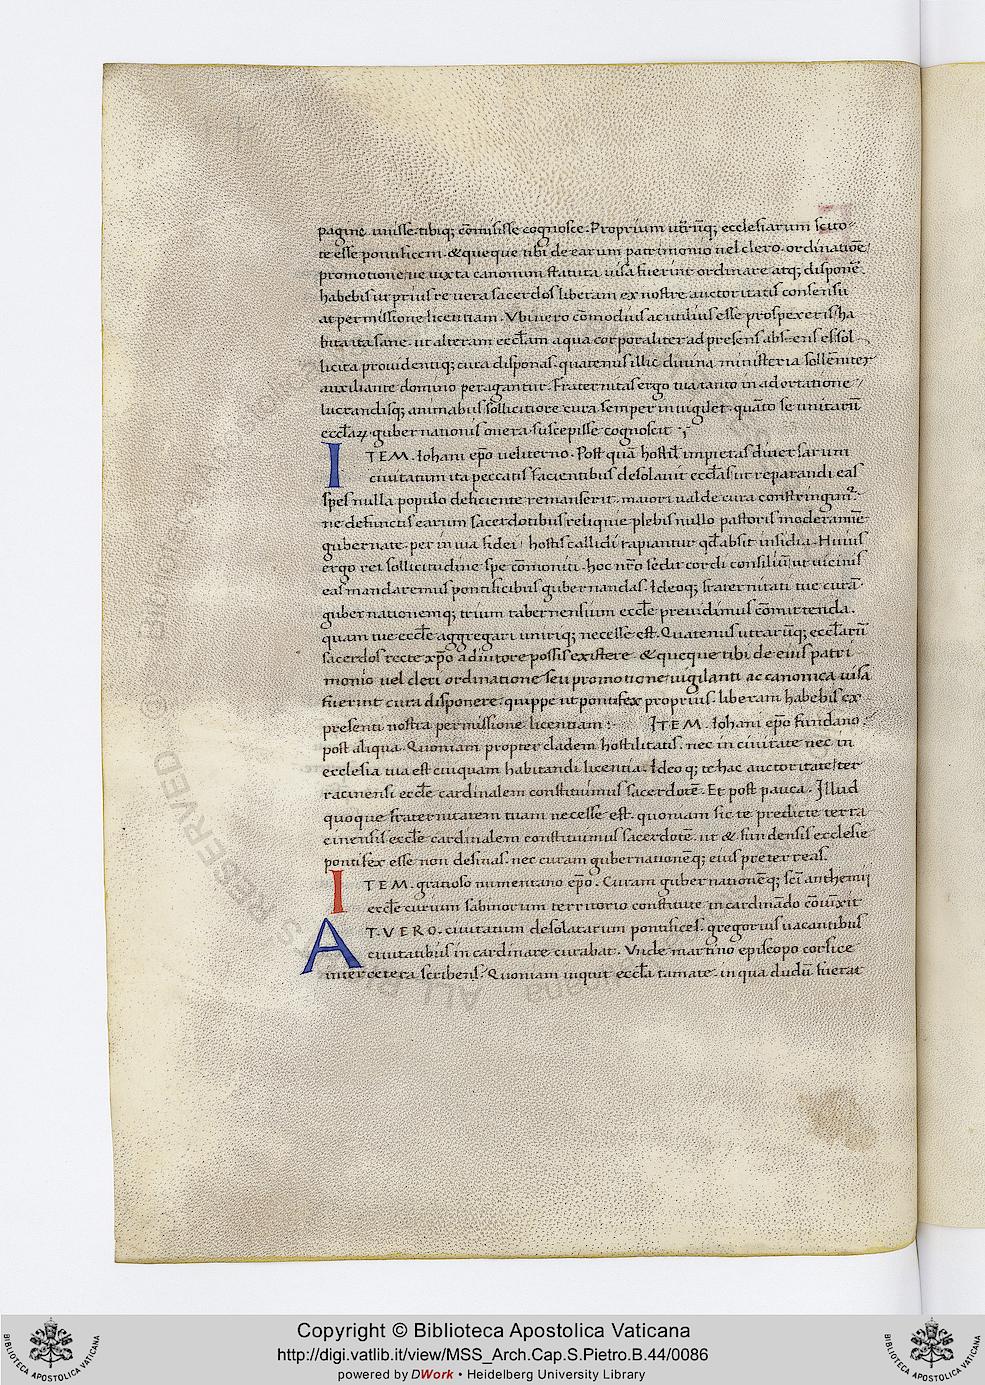 pagine unisse tibiq; cōmisisse cognosce. Proprium utrūq; ecclesiarum scito
te esse pontificem. & queque tibi de earum patrimonio uel clero. ordinatiōe
promotione ue iuxta canonum statuta uisa fuerint ordinare atq; disponē.
habebis ut prius re uera sacerdos liberam ex nostre auctoritatis consensu
at permissione licentiam. Vbi uero cōmodius ac utilius esse prospexeris ha
bita ita sane. ut alteram eccl̄am a qua corporaliter ad presens absens es sol
licita prouidentiq; cura disponas. quatenus illic diuina ministeria sollēniter
auxiliante domino peragantur. Fraternitas ergo tua tanto in adortatione
lucrandisq; animabus sollicitiore cura semper inuigilet. quāto se unitarū
eccl̄aꝝ gubernationis onera suscepisse cognoscit ;
ITEM. Iohani ep̄o ueliterno. Post quā hostil̄ impietas diuersarum
ciuitatum ita peccatis facientibus desolauit eccl̄as ut reparandi eas
spes nulla populo deficiente remanserit. maiori ualde cura constringimr̄.
ne defunctis earum sacerdotibus reliquie plebis nullo pastoris moderamīe
gubernate. per inuia fidei hostis callidi rapiantur qd̄ absit insidia. Huius
ergo rei sollicitudine sepe cōmoniti. hoc nr̄o sedit cordi consiliū ut uicinis
eas mandaremus pontificibus gubernandas. Ideoq; fraternitati tue curā
gubernationemq; trium tabernensium eccl̄e preuidimus cōmittenda.
quam tue eccl̄e aggregari uniriq; necesse est. Quatenus utrarūq; eccl̄arū
sacerdos recte xp̄o adiutore possis existere & queque tibi de eius patri
monio uel cleri ordinatione seu promotione uigilanti ac canonica uisa
fuerint cura disponere. quippe ut pontifex proprius. liberam habebis ex
presenti nostra permissione licentiam : ITEM. Iohani ep̄o fundano.
post aliqua. Quoniam propter cladem hostilitatis. nec in ciuitate nec in
ecclesia tua est cuiquam habitandi licentia. Ideoq; te hac auctoritate ter
racinensi eccl̄e cardinalem constituimus sacerdotē. Et post pauca. Illud
quoque fraternitatem tuam necesse est. quoniam sic te predicte terra
cinensis eccl̄e cardinalem constituimus sacerdotē. ut & fundensis ecclesie
pontifex esse non desinas. nec curam gubernationēq; eius pretereas.
ITEM. gratioso numentano ep̄o. Curam gubernationēq; sc̄i anthemij
eccl̄e curium sabinorum territorio constitute in cardinādo cōiūxit
AT. VERO. ciuitatum desolatarum pontifices. gregorius uacantibus
ciuitatibus in cardinare curabat. Vnde martino episcopo corsice
inter cetera scribens. Quoniam inquit eccl̄a tamate. in qua dudū fuerat
Copyright © Biblioteca Apostolica Vaticana
http://digi.vatlib.it/view/MSS_Arch.Cap.S.Pietro.B.44/0086
powered by DWork • Heidelberg University Library
BIBLIOTECA APOSTOLICA VATICANA
BIBLIOTECA APOSTOLICA VATICANA